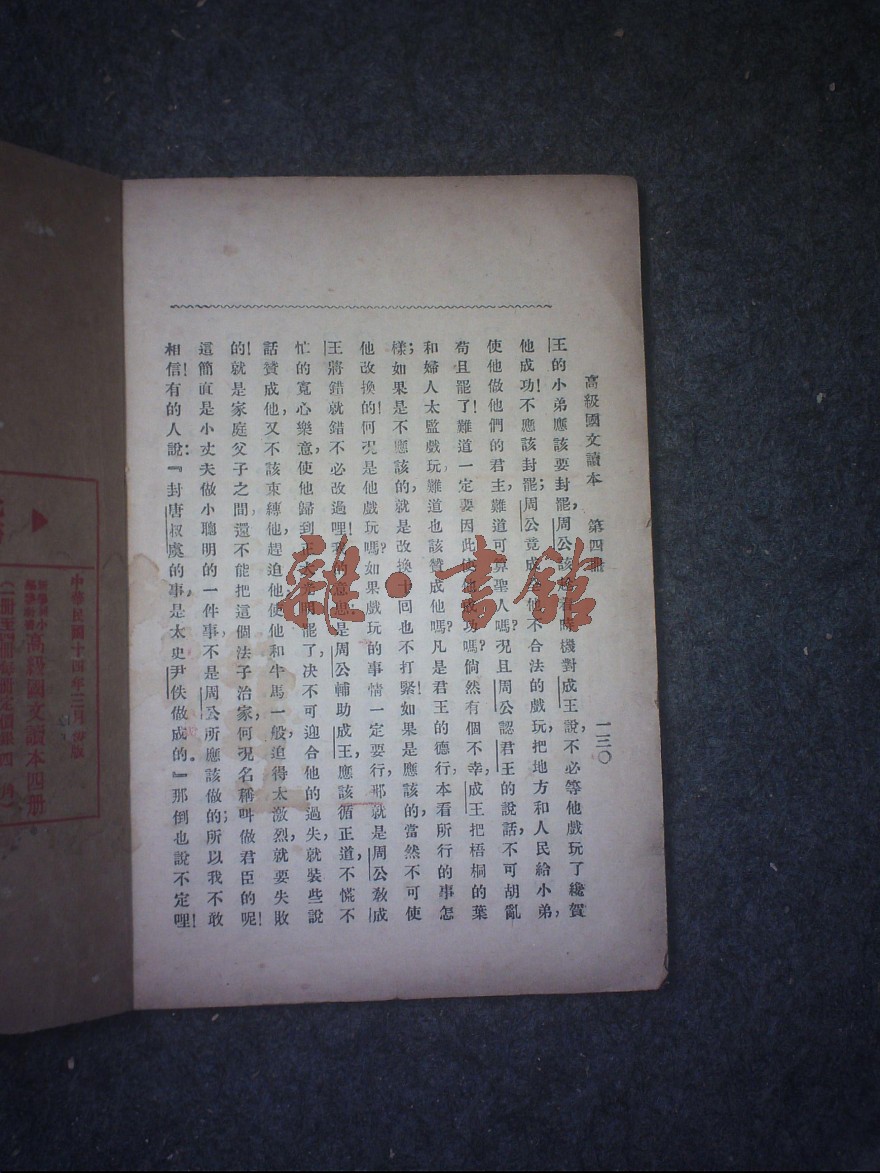 高級國文讀本 第四冊 一三〇
王的小弟應該要封罷,周公該趁着時機對成王說,不必等他戲玩了纔賀
他成功!不應該封罷;周公竟成全他不合法的戲玩,把地方和人民給小弟,
使他做他們的君主,難道可算聖人嗎?況且周公認君王的說話,不可胡亂
苟且罷了!難道一定要因此使他成功嗎?倘然有個不幸,成王把梧桐的葉
和婦人太監戲玩,難道也該贊成他嗎?凡是君王的德行,本看所行的事怎
樣;如果是不應該的,就是改換十回也不打緊;如果是應該的,當然不可使
他改換的!何況是他戲玩嗎?如果戲玩的事情一定要行,那就是周公教成
王將錯就錯不必改過哩!我的意思是周公輔助成王,應該循正道,不慌不
忙的寬心樂意,使他歸到正大光明罷了,決不可迎合他的過失,就裝些說
話贊成他,又不該束縛他,趕迫他,使他和牛馬一般,迫得太激烈,就要失敗
的!就是家庭父子之間,還不能把這個法子治家,何況名稱叫做君臣的呢!
這簡直是小丈夫做小聰明的一件事,不是周公所應該做的;所以我不敢
相信!有的人說:『封唐叔虞的事,是太史尹佚做成的。』那倒也說不定哩!
雜·書館
中華民國十四年三月
高級國文讀本四冊